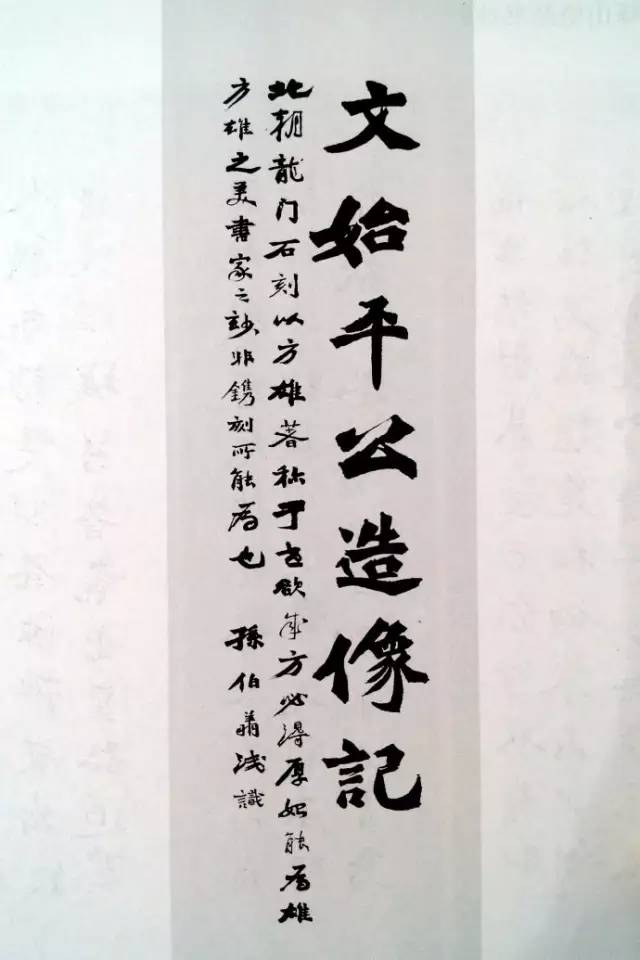 文始平公造像記
北朝龍门石刻以方雄著称于世欲成方必得厚始能為雄
方雄之美書家之妙非鐫刻所能為也 孫伯翔浅識